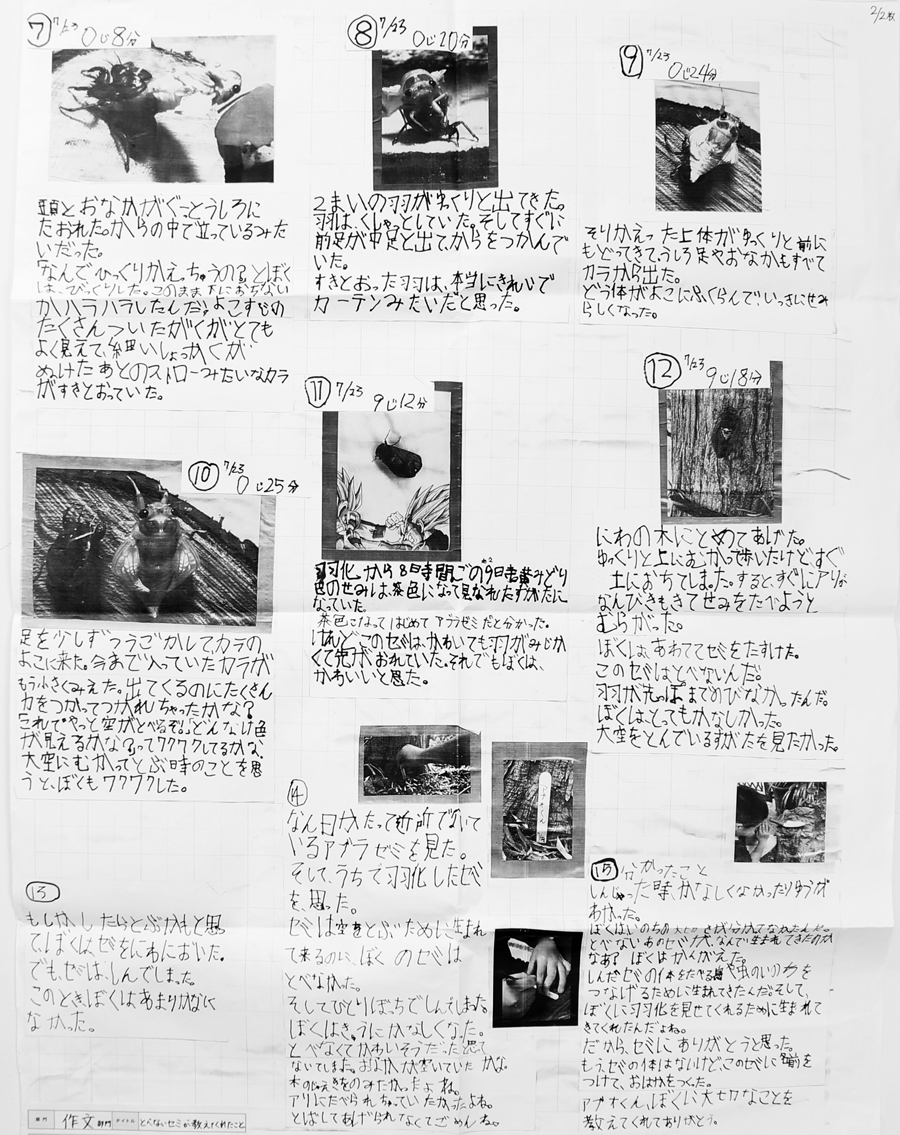 2/2枚
⑦ 7/23 0じ8分
頭とおなかがぐっとうしろに
たおれた。からの中で立っているみた
いだった。
「なんでひっくりかえっちゃうの?」とぼく
はびっくりした。このまま下におちない
かハラハラしたんだ。よこすじの
たくさんついたがくがとても
よく見えて、細いしょっかくが
ぬけたあとのストローみたいなカラ
がすきとおっていた。
⑧ 7/23 0じ20分
2まいの羽がゆっくりと出てきた。
羽はくしゃっとしていた。そしてすぐに
前足が中足と出て、からをつかんで
いた。
すきとおった羽は、本当にきれいで
カーテンみたいだと思った。
⑨ 7/23 0じ24分
そりかえった上体がゆっくりと前に
もどってきて、うしろ足やおなかもすべて
カラから出た。
どう体がよこにふくらんで、いっきにせみ
らしくなった。
⑩ 7/23 0じ25分
足を少しずつうごかして、カラの
よこに来た。今まで入っていたカラが
もう小さくみえた。出てくるのにたくさん
力をつかってつかれちゃったかな?
これで、やっと空がとべるぞ。どんなけ色
が見えるかな?ってワクワクしてるかな、
大空にむかってとぶ時のことを思
うと、ぼくもワクワクした。
⑪ 7/23 9じ12分
羽化から8時間ごの9日 黄みどり
色のせみは、茶色になって見なれたすがたに
なっていた。
茶色になってはじめてアブラゼミだと分かった。
けれど、このセミは、かわいても羽がみじか
くて先がおれていた。それでもぼくは、
かわいいと思った。
⑫ 7/23 9じ18分
にわの木にとめてあげた。
ゆっくりと上にむかって歩いたけど、すぐ
土におちてしまった。するとすぐにアリが
なんびきもきてせみをたべようと
むらがった。
ぼくは、あわててセミをたすけた。
このセミはとべないんだ。
羽が先っぽまでのびなかったんだ。
ぼくは、とてもかなしかった。
大空をとんでいるすがたを見たかった。
⑬
もしかしたらとぶかもと思っ
てぼくは、セミをにわにおいた。
でもセミは、しんでしまった。
このときぼくはあまりかなしく
なかった。
⑭
なん日かたって近所でないて
いるアブラゼミを見た。
そして、うちで羽化したセミ
を思った。
セミは空をとぶために生まれ
て来るのに、ぼくのセミは
とべなかった。
そしてひとりぼっちでしんでしまった。
ぼくはきゅうにかなしくなった。
とべなくてかわいそうだったと思って
ないてしまった。おなかが空いていたかな。
木のじゅえきをのみたかったよね。
アリにたべられちゃっていたかったよね。
とばしてあげられなくてごめんね。
⑮ 分かったこと
しんじゃった時かなしくなかったりゆうが
わかった。
とべないあのセミが、なんで生まれてきたのか
なあ?ぼくはかんがえた。
しんだセミの体をたべる 虫のいのちを
つなげるために生まれてきたんだ。そして、
ぼくに羽化を見せてくれるために生まれて
きてくれたんだよね。
だから、セミにありがとうと思った。
もう、セミの体はないけど、このセミに名前を
つけて、おはかをつくった。
アブオくん、ぼくに大切なことを
教えてくれてありがとう。
部門 作文部門 タイトル とらないセミが教えてくれたこと